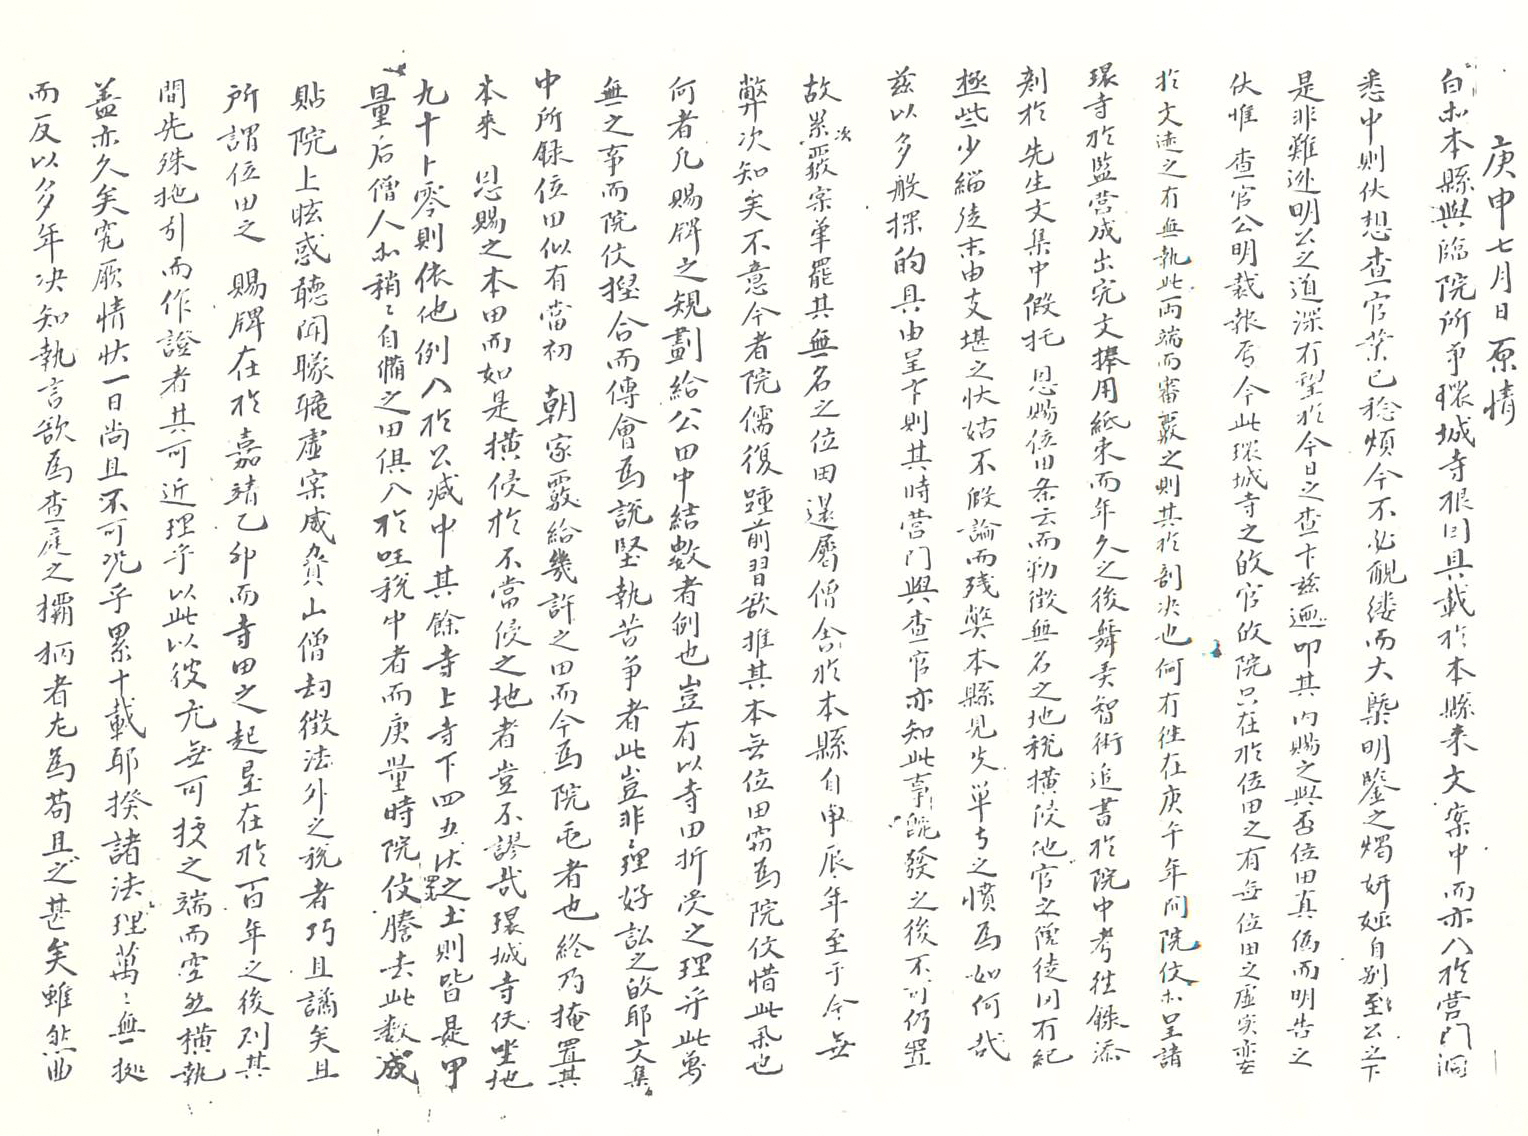 庚申七月日 原情
白等本縣與臨院所爭環城寺根因具載於本縣來文案中而亦入於營門洞
悉中則伏想查官業已稔煩今不必覼縷而大槩明鑒之燭姸媸自別至公之下
是非難逃明公之道深有望於今日之查卞玆迺叩其內賜之與否位田眞僞而明告之
伏惟 查官公明裁報焉今此環城寺之的官的院只在於位田之有無位田之虛實
於文迹之有無執此兩端而審覈之則其於剖決也何有往在庚午年間院伩等呈諸
環寺於監營成出完文捧用紙束而年久之後舞弄智術追書於院中考往錄添
刻於先生文集中假托 恩賜位田条云而勒徵無名之地稅橫侵他官之僧徒川有紀
極些少緇徒末由支堪之怢姑不假論而殘弊本縣見失単寺之憤爲如何哉
玆以多般探的具由呈卞則其時營門與查官亦知此事 發之後不可仍置
故累次覈案革罷其無名之位田還屬僧舍於本縣自甲辰年至于今無
弊次知矣不意今者院儒復踵前習欲推其本無位田爲院伩惜此乖也
何者凡 賜牌之規劃給公田中結數者例也豈有以寺田折受之理乎此萬
無之事而院伩捏合而傅會爲說堅執苦爭者此豈非〻理好訟之的耶文集
中所錄位田似有當初 朝家覈給幾許之田而今爲院屯者也終乃掩置其
本來 恩賜之本田而如是橫侵於不當侵之地者豈不謬哉環城寺伏坐地
九十卜零則依他例入於公減中其餘寺上寺下四五伏之土則皆是甲
量后僧人等稍〻自備之田俱入於旺稅中者而庚量時院伩謄去此數成
貼院上眩惑聽聞矇矓虛案威脅山僧刧徵法外之稅者巧且譎矣且
所謂位田之 賜牌在於嘉靖乙卯而寺田之起墾在於百年之後則其
間先殊拖引而作證者其可近理乎以此以彼尤無可授之端而空然橫執
蓋亦久矣究厥情怢一日尚且不可況乎累十載耶揆諸法理萬〻無據
而反以多年決知執言欲爲查庭之欛柄者尤爲苟且之甚矣雖然曲